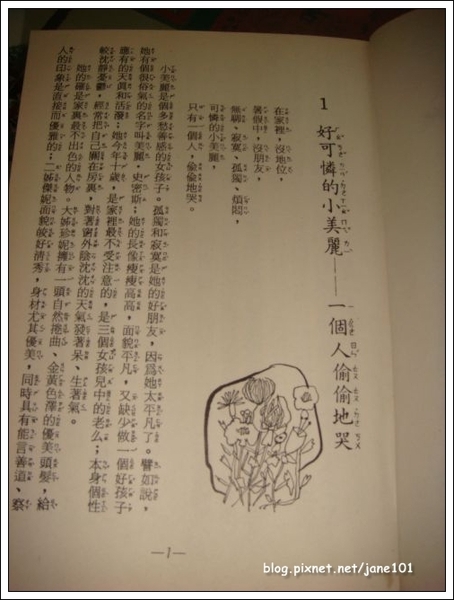 1 好可憐的小美麗──一個人偷偷地哭
在家裡，沒地位，
暑假中，沒朋友，
無聊、寂寞、孤獨、煩悶，
可憐的小美麗，
只有一個人，偷偷地哭。
小美麗是個多愁善感的女孩子。孤獨和寂寞是她的好朋友，因為她太平凡了。譬如說，
她有個很俗氣的名字叫美麗．史密斯；她的長像瘦瘦高高，面貌平凡，又缺少做一個好孩子
應有的天真和活潑；她今年十歲，是家裡最不受注意的，是三個女孩兒中的老么；本身個性
較沈靜憂鬱，經常把自己關在房裏，對著窗外陰沈沈的天氣發著呆、生著氣。
她的確是家裏最不出色的人物。大姊珍妮擁有一頭自然捲曲、金黃色澤的優美頭髮，給
人的印象是直接而優雅的；二姊傑妮面貌姣好清秀，身材尤其優美，同時具有能言善道、察
—1—
blog.pixnet.net/jane101